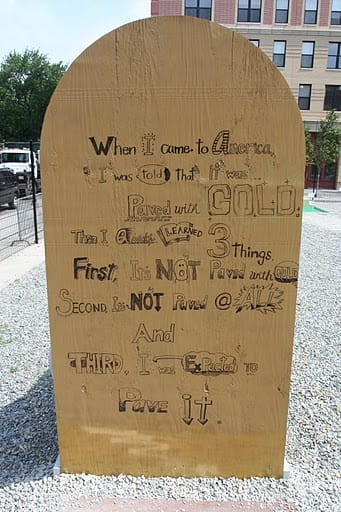 When I came to America,
I was told that it was...
Paved with GOLD.
Then I Quickly LEARNED 3 Things.
First, It's NOT Paved with GOLD
Second, It's NOT Paved @ ALL
And
THIRD, I was Expected TO
Pave it.